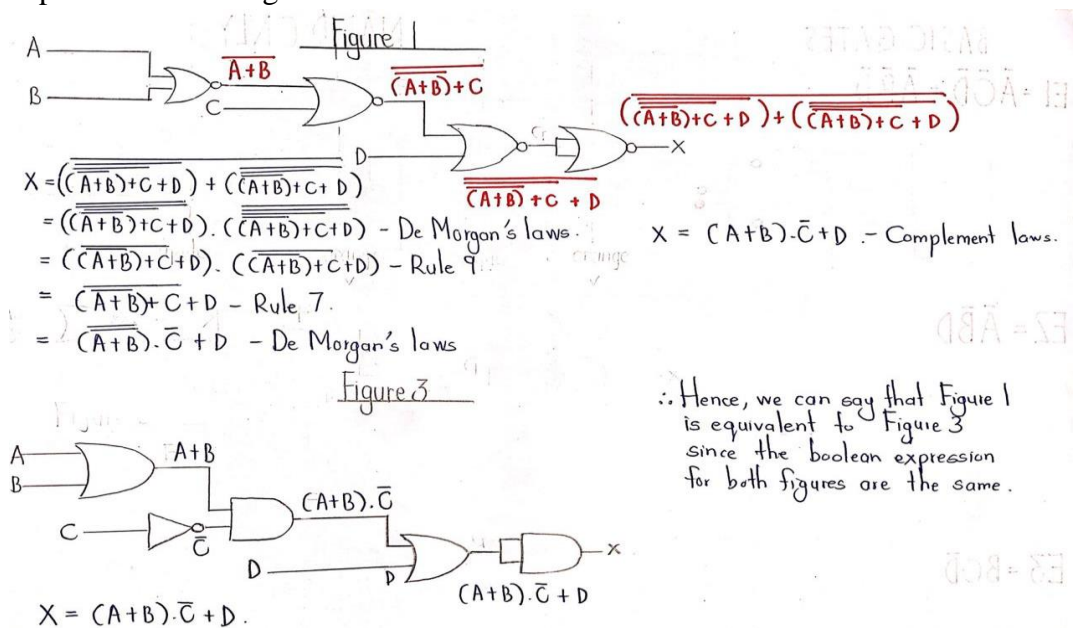 Figure 1
A
B
A̅+̅B̅
C
(A̅+̅B̅)+C with overline
D
X
X = ((A+B)+C+D) + ((A+B)+C+D)
= ((A+B)+C+D). ((A+B)+C+D) - De Morgan's laws.
= ((A+B)+C+D). ((A+B)+C+D) - Rule 9
= (A+B)+C+D - Rule 7.
= (A+B).C̅ + D - De Morgan's laws
X = (A+B).C̅+D .- Complement laws.
Figure 3
A
B
A+B
C
C̅
(A+B).C̅
D
D
(A+B).C̅ + D
X
X = (A+B).C̅ + D.
∴ Hence, we can say that Figure 1
is equivalent to Figure 3
since the boolean expression
for both figures are the same.